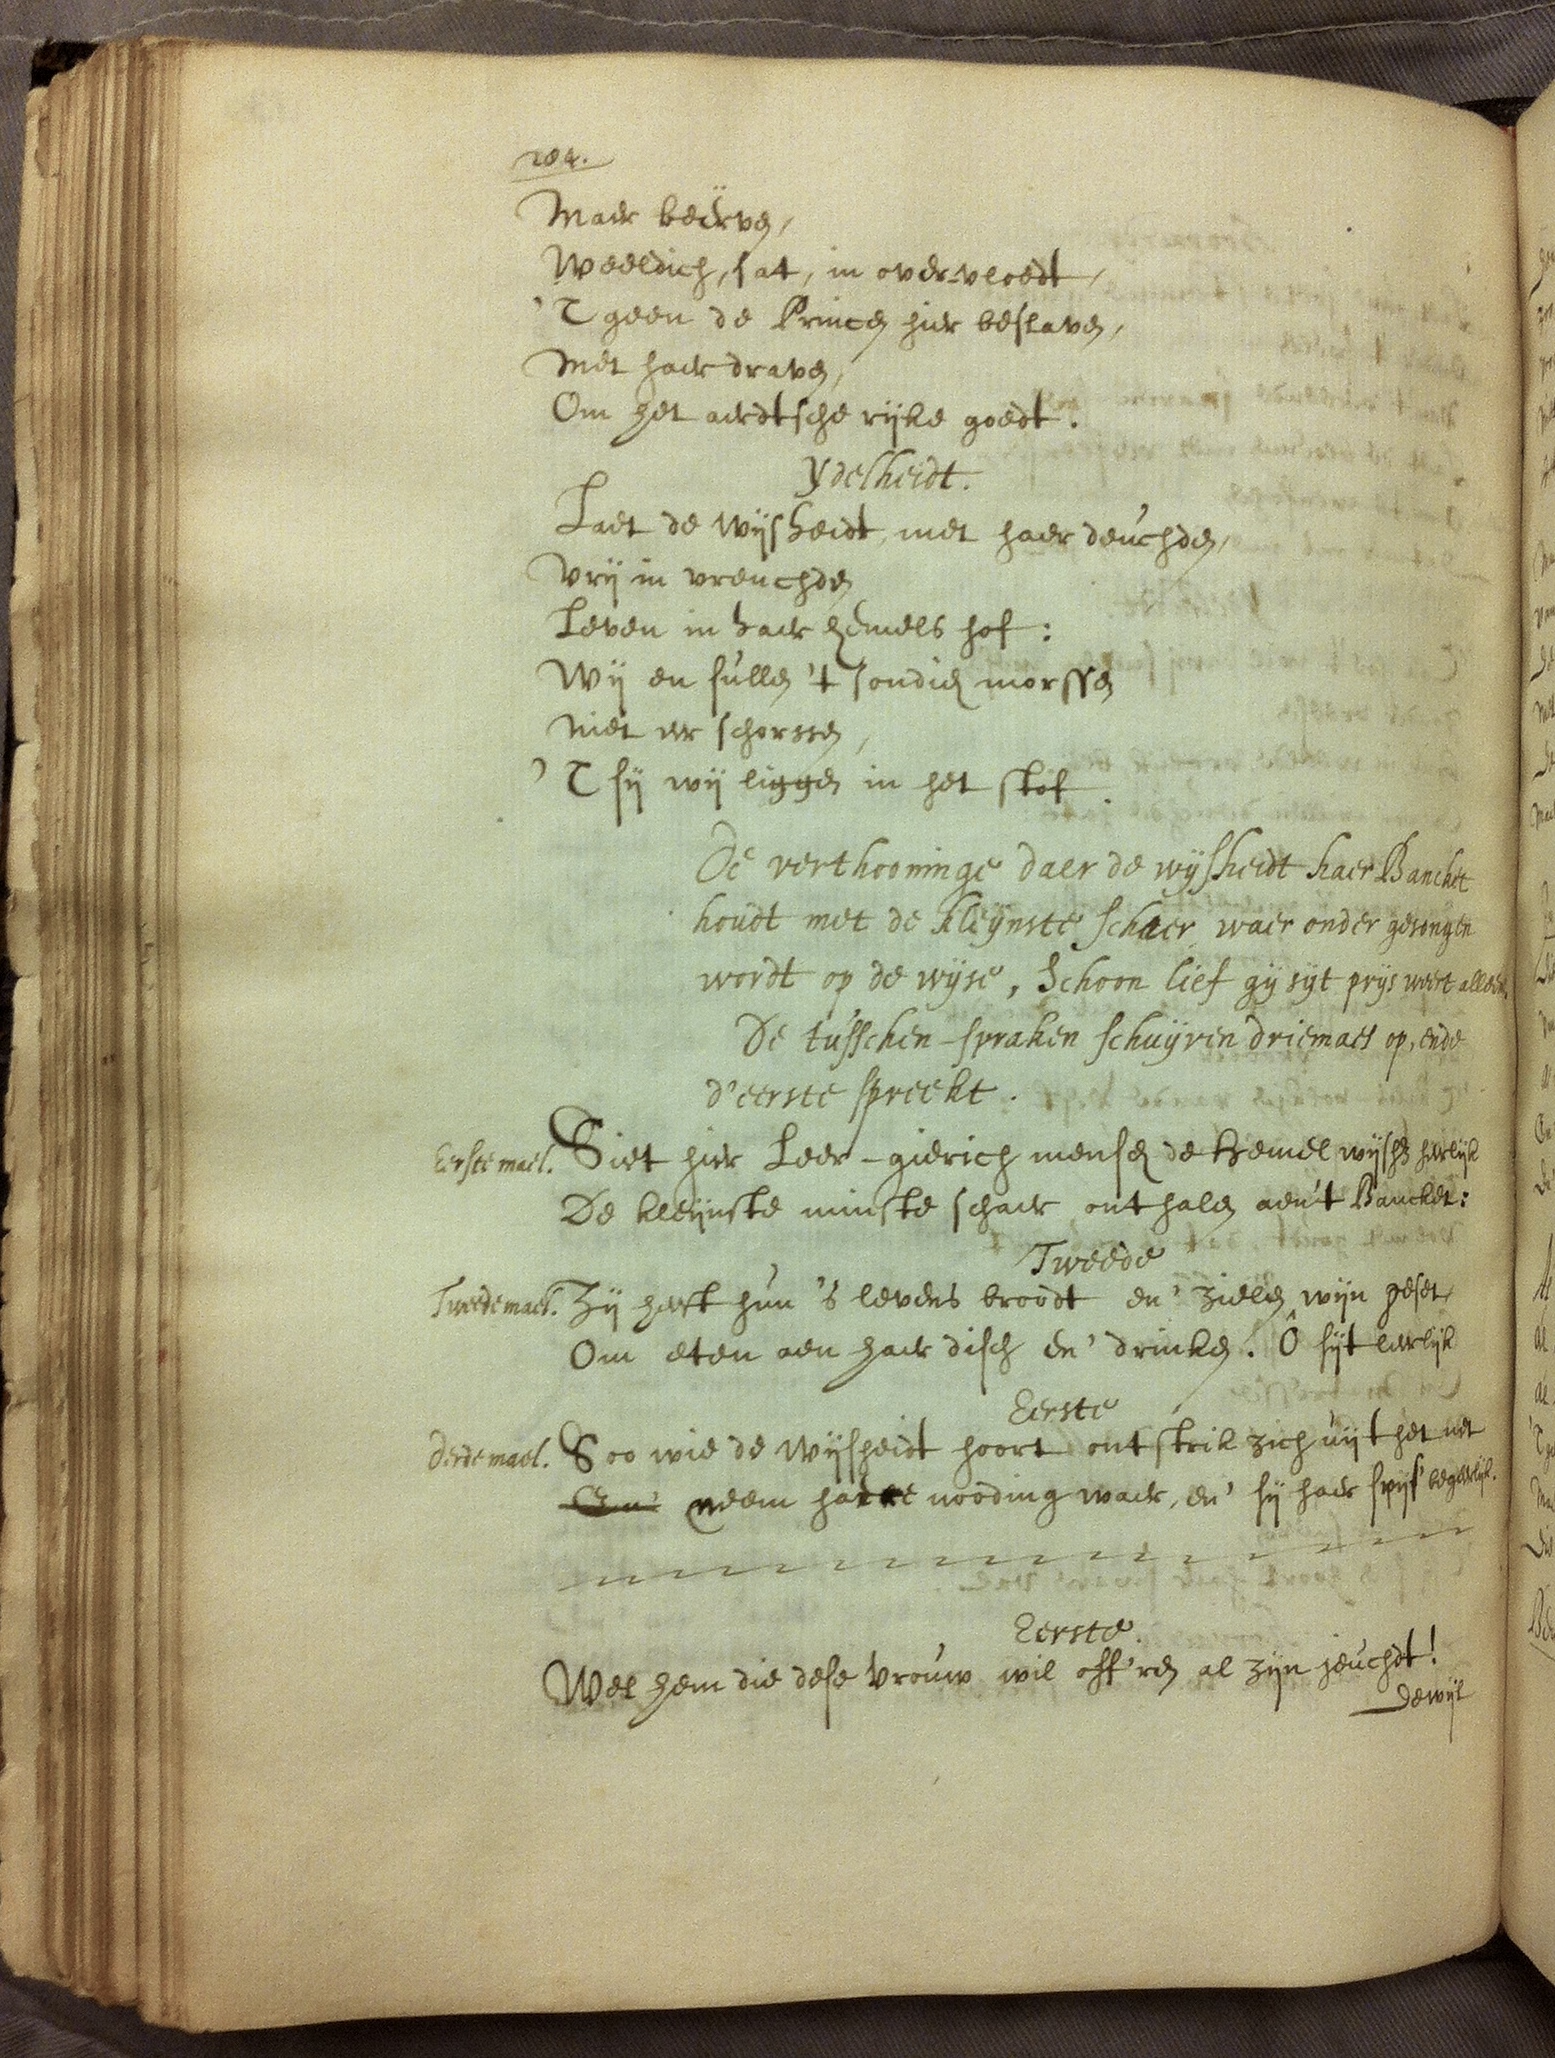 204.
Maer beërven,
Weeldich, sat, in over-vloedt,
'T geen de Princen hier beslaven,
Met haer draven,
Om het aerdtsche rijke goedt.
Ydelheidt.
Laet de Wijsheidt, met haer deuchden,
Vrij in vreuchden
Leven in haer hemels hof:
Wij en sullen 't sondich morssen
Niet er schorssen,
'T sij wij liggen in het stof.
De verthooninge daer de wijsheidt haer Banchet
houdt met de kleijnste schaer, waer onder gesongen
wordt op de wijse, Schoon lief gij sijt prijs weert alleen.
De tusschen-spraken schuijven driemaes op, ende
d'eerste spreekt.
Eerste mael. Siet hier Leer-gierich mensch de hemel wijsh heerlijk
De kleijnste minste schaer onthalen aen't Bancket:
Tweede
Tweede mael. Zij heeft hun 's levens broodt en' zielen wijn geset,
Om eten aen haer disch en' drinken. Ô sijt eerlijk
Eerste
Derde mael. Soo wie de Wijsheidt hoort ontstrik zich uijt het net
En' neem haere nooding waer, en' sij haer spijs' begeerlijk.
Eerste.
Wel hem die dese Vrouw wil off'ren al zijn jeuchdt!
Dewijl